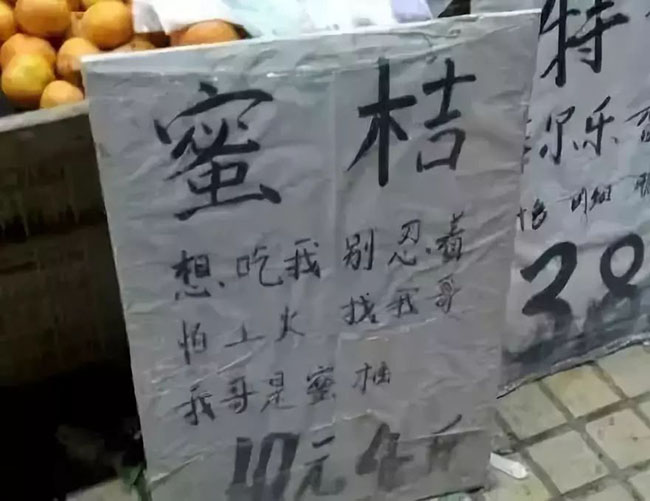 蜜桔
想吃我别忍着
怕上火找我哥
我哥是蜜柚
10元4斤
特
尔乐
肉细
38